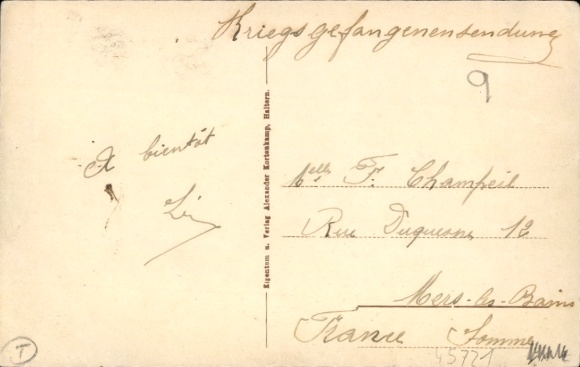 Kriegsgefangenensendung
9
A bientôt
Melle F. Champeil
Rue Duquesne 12
Mers-les-Bains
France Somme
45721
T
Eigentum u. Verlag Alexander Kortenkamp, Haltern.